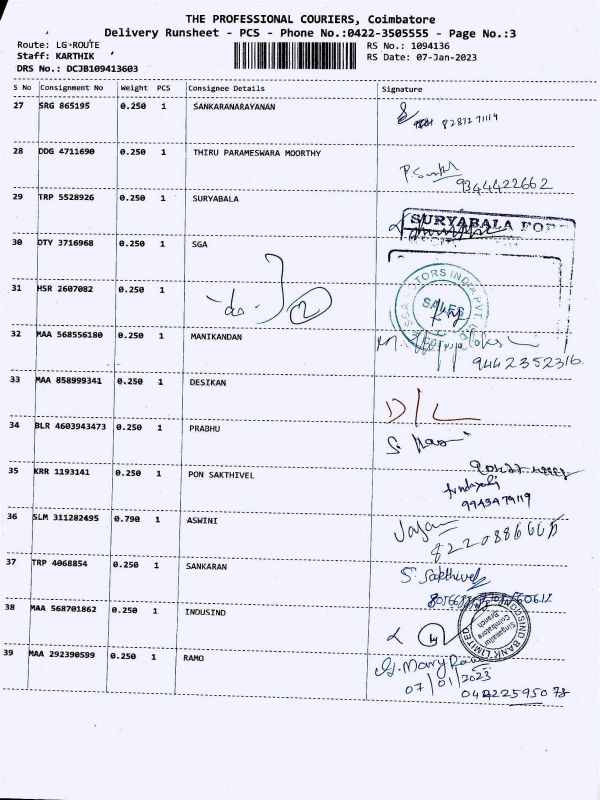 THE PROFESSIONAL COURIERS, Coimbatore
Delivery Runsheet - PCS - Phone No.:0422-3505555 - Page No.:3
Route: LG-ROUTE RS No.: 1094136
Staff: KARTHIK RS Date: 07-Jan-2023
DRS No.: DCJB109413603
S No Consignment No Weight PCS Consignee Details Signature
27 SRG 865195 0.250 1 SANKARANARAYANAN
28 DDG 4711690 0.250 1 THIRU PARAMESWARA MOORTHY
9344422662
29 TRP 5528926 0.250 1 SURYABALA
SURYABALA
30 DTY 3716968 0.250 1 SGA
31 HSR 2607082 0.250 1 -do- 2
SALES
32 MAA 568556180 0.250 1 MANIKANDAN
9442352316
33 MAA 858999341 0.250 1 DESIKAN
D/L
34 BLR 4603943473 0.250 1 PRABHU
35 KRR 1193141 0.250 1 PON SAKTHIVEL
9943479119
36 SLM 311282495 0.790 1 ASWINI
37 TRP 4068854 0.250 1 SANKARAN
S. Sakthivel
38 MAA 568701862 0.250 1 INDUSIND
INDUSIND BANK LIMITED
Singanallur
Coimbatore
Branch
39 MAA 292390599 0.250 1 RAMO
07/01/2023